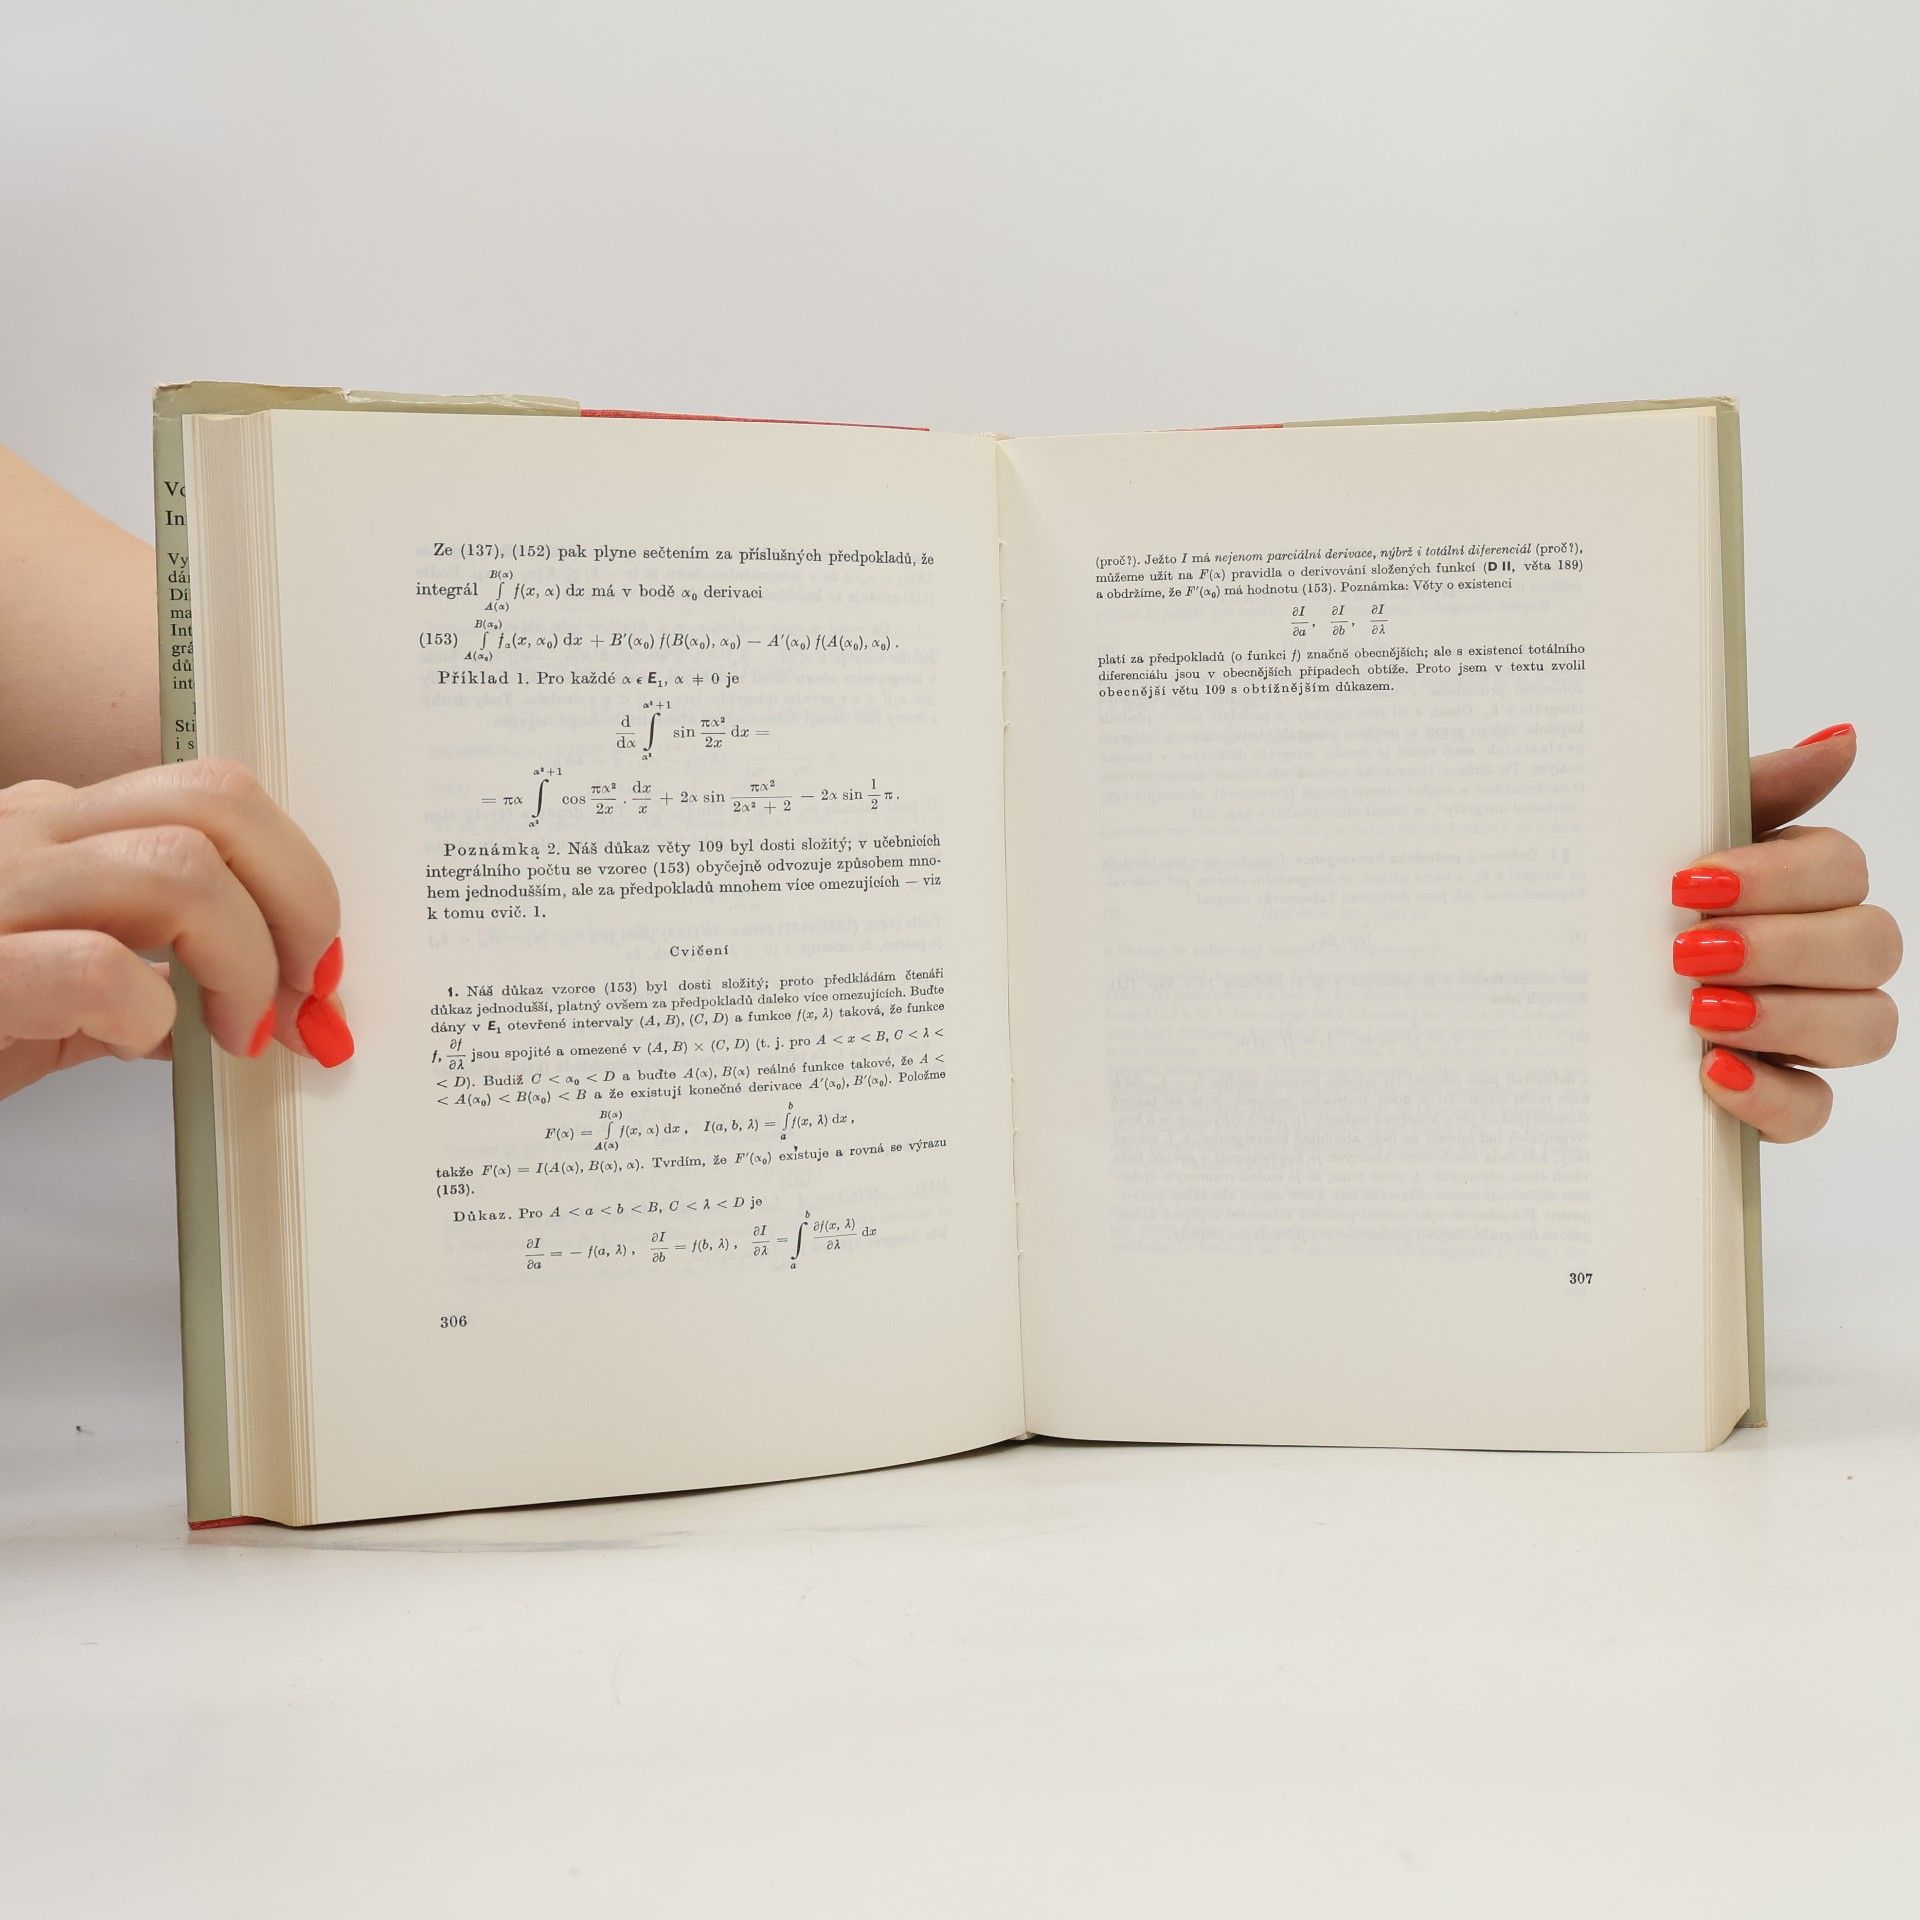 Vo
In
Vy
dá
Dí
ma
Int
grá
dů
int
Sti
i s
Ze (137), (152) pak plyne sečtením za příslušných předpokladů, že
integrál ∫_{A(α)}^{B(α)} f(x, α) dx má v bodě α₀ derivaci
(153) ∫_{A(α₀)}^{B(α₀)} f_α(x, α₀) dx + B′(α₀) f(B(α₀), α₀) − A′(α₀) f(A(α₀), α₀) .
Příklad 1. Pro každé α ϵ E₁, α ≠ 0 je
d/dα ∫_{α²}^{α²+1} sin πα²/2x dx =
= πα ∫_{α²}^{α²+1} cos πα²/2x . dx/x + 2α sin πα²/(2α² + 2) − 2α sin 1/2 π .
Poznámka 2. Náš důkaz věty 109 byl dosti složitý; v učebnicích
integrálního počtu se vzorec (153) obyčejně odvozuje způsobem mno-
hem jednodušším, ale za předpokladů mnohem více omezujících — viz
k tomu cvič. 1.
Cvičení
1. Náš důkaz vzorce (153) byl dosti složitý; proto předkládám čtenáři
důkaz jednodušší, platný ovšem za předpokladů daleko více omezujících. Buďte
dány v E₁ otevřené intervaly (A, B), (C, D) a funkce f(x, λ) taková, že funkce
f, ∂f/∂λ jsou spojité a omezené v (A, B) × (C, D) (t. j. pro A < x < B, C < λ <
< D). Budiž C < α₀ < D a buďte A(α), B(α) reálné funkce takové, že A <
< A(α₀) < B(α₀) < B a že existují konečné derivace A′(α₀), B′(α₀). Položme
F(α) = ∫_{A(α)}^{B(α)} f(x, α) dx , I(a, b, λ) = ∫_{a}^{b} f(x, λ) dx ,
takže F(α) = I(A(α), B(α), α). Tvrdím, že F′(α₀) existuje a rovná se výrazu
(153).
Důkaz. Pro A < a < b < B, C < λ < D je
∂I/∂a = − f(a, λ) , ∂I/∂b = f(b, λ) , ∂I/∂λ = ∫_{a}^{b} ∂f(x, λ)/∂λ dx
306
(proč?). Ježto I má nejenom parciální derivace, nýbrž i totální diferenciál (proč?),
můžeme užít na F(α) pravidla o derivování složených funkcí (D II, věta 189)
a obdržíme, že F′(α₀) má hodnotu (153). Poznámka: Věty o existenci
∂I/∂a , ∂I/∂b , ∂I/∂λ
platí za předpokladů (o funkci f) značně obecnějších; ale s existencí totálního
diferenciálu jsou v obecnějších případech obtíže. Proto jsem v textu zvolil
obecnější větu 109 s obtížnějším důkazem.
307